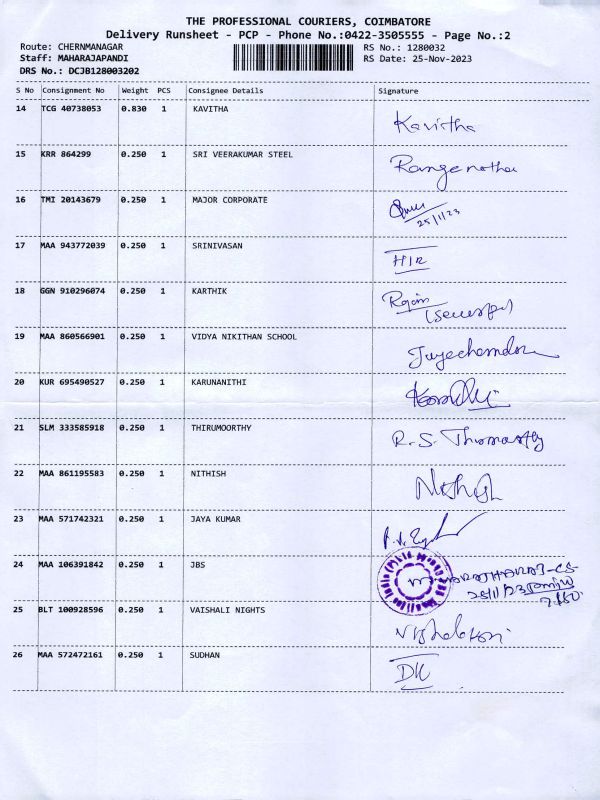 THE PROFESSIONAL COURIERS, COIMBATORE
Delivery Runsheet - PCP - Phone No.:0422-3505555 - Page No.:2
Route: CHERNMANAGAR RS No.: 1280032
Staff: MAHARAJAPANDI RS Date: 25-Nov-2023
DRS No.: DCJB128003202
S No Consignment No Weight PCS Consignee Details Signature
14 TCG 40738053 0.830 1 KAVITHA Kavitha
15 KRR 864299 0.250 1 SRI VEERAKUMAR STEEL
16 TMI 20143679 0.250 1 MAJOR CORPORATE
25/11/23
17 MAA 943772039 0.250 1 SRINIVASAN
18 GGN 910296074 0.250 1 KARTHIK
19 MAA 860566901 0.250 1 VIDYA NIKITHAN SCHOOL
20 KUR 695490527 0.250 1 KARUNANITHI
21 SLM 333585918 0.250 1 THIRUMOORTHY R.S.
22 MAA 861195583 0.250 1 NITHISH Nithish
23 MAA 571742321 0.250 1 JAYA KUMAR
24 MAA 106391842 0.250 1 JBS
25 BLT 100928596 0.250 1 VAISHALI NIGHTS
26 MAA 572472161 0.250 1 SUDHAN